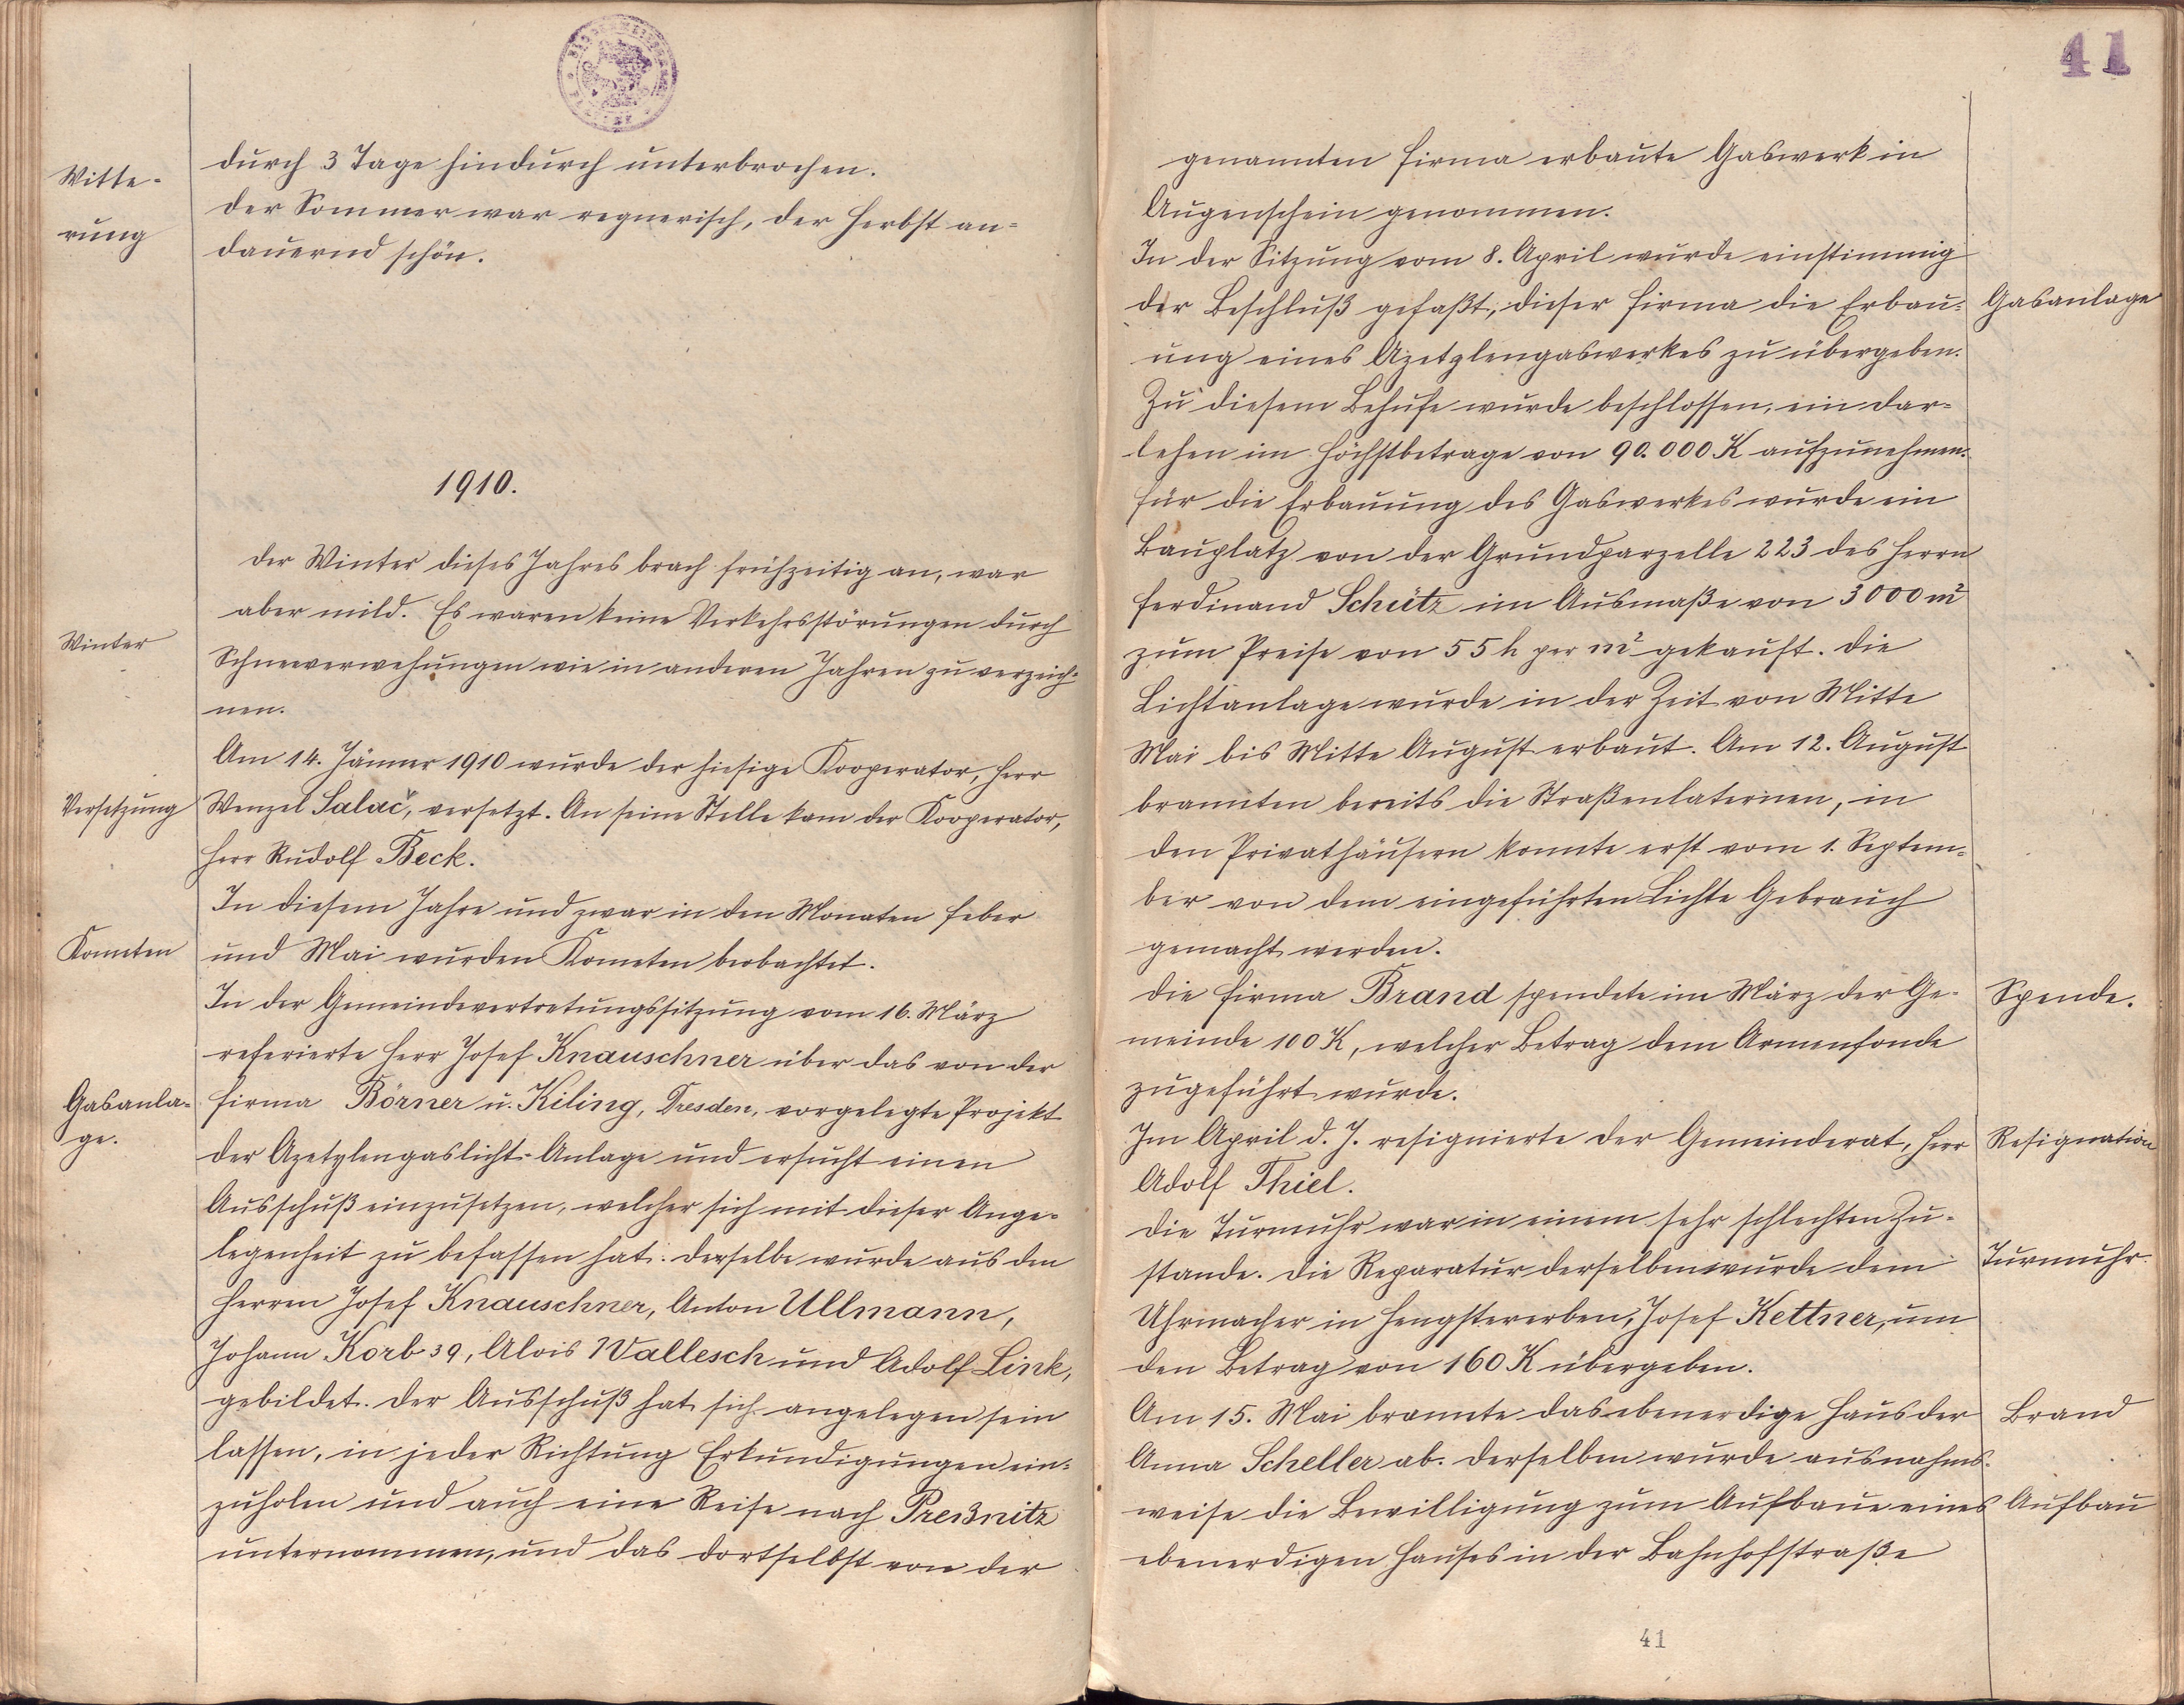 Witte-
rung
durch 3 Tage hindurch unterbrochen.
Der Sommer war regnerisch, der Herbst an-
dauernd schön.
1910.
Der Winter dieses Jahres brach frühzeitig an, war
aber mild. Es waren keine Verkehrsstörungen durch
Winter
Schneeverwehungen wie in anderen Jahren zu verzeich-
nen.
Am 14. Jänner 1910 wurde der hiesige Kooperator, Herr
Versetzung
Wenzel Salač, versetzt. An seine Stelle kam der Kooperator,
Herr Rudolf Beck.
In diesem Jahre und zwar in den Monaten Feber
Kometen
und Mai wurden Kometen beobachtet.
In der Gemeindevertretungssitzung vom 16. März
referierte Herr Josef Knauschner über das von der
Gasanla-
ge.
Firma Börner u. Kiling, Dresden, vorgelegte Projekt
der Azetylengaslicht-Anlage und ersucht einen
Ausschuß einzusetzen, welcher sich mit dieser Ange-
legenheit zu befassen hat. Derselbe wurde aus den
Herren Josef Knauschner, Anton Ullmann,
Johann Korb 39, Alois Wallesch und Adolf Link,
gebildet. Der Ausschuß hat sich angelegen sein
lassen, in jeder Richtung Erkundigungen ein-
zuholen und auch eine Reise nach Preßnitz
unternommen, und das dortselbst von der
41
genannten Firma erbaute Gaswerk in
Augenschein genommen.
In der Sitzung vom 8. April wurde einstimmig
der Beschluß gefaßt, dieser Firma die Erbau-
Gasanlage
ung eines Azetylengaswerkes zu übergeben.
Zu diesem Behufe wurde beschlossen, ein Dar-
lehen im Höchstbetrage von 90.000 K aufzunehmen.
Für die Erbauung des Gaswerkes wurde ein
Bauplatz von der Grundparzelle 223 des Herrn
Ferdinand Schütz im Ausmaße von 3000 m²
zum Preise von 55 h per m² gekauft. Die
Lichtanlage wurde in der Zeit von Mitte
Mai bis Mitte August erbaut. Am 12. August
brannten bereits die Straßenlaternen, in
den Privathäusern konnte erst vom 1. Septem-
ber von dem eingeführten Lichte Gebrauch
gemacht werden.
Die Firma Brand spendete im März der Ge-
Spende.
meinde 100 K, welcher Betrag dem Armenfonde
zugeführt wurde.
Im April d. J. resignierte der Gemeinderat, Herr
Resignation
Adolf Thiel.
Die Turmuhr war in einem sehr schlechten Zu-
Turmuhr.
stande. Die Reparatur derselben wurde dem
Uhrmacher in Hengstererben, Josef Kettner, um
den Betrag von 160 K übergeben.
Am 15. Mai brannte das ebenerdige Haus der
Brand
Anna Scheller ab. Derselben wurde ausnahms-
weise die Bewilligung zum Aufbaue eines
Aufbau
ebenerdigen Hauses in der Bahnhofstraße
41